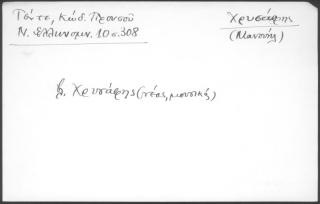 Χρυσάφης
(Μανουήλ)
Γόντε, Κώδ. Προυσού
Ν. Ελληνομν. 10 σ. 308
β. Χρυσάφης (νέος, μουσικός)